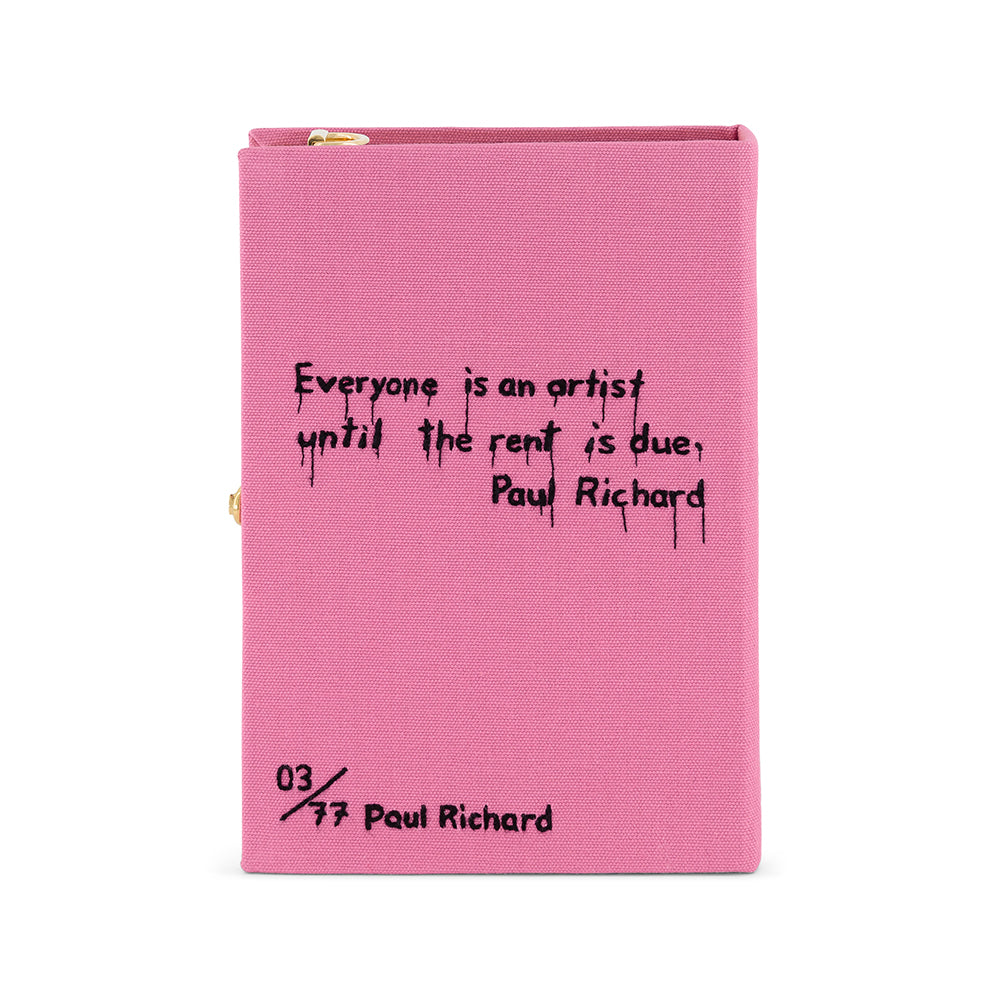 Everyone is an artist
until the rent is due.
Paul Richard
03/77 Paul Richard